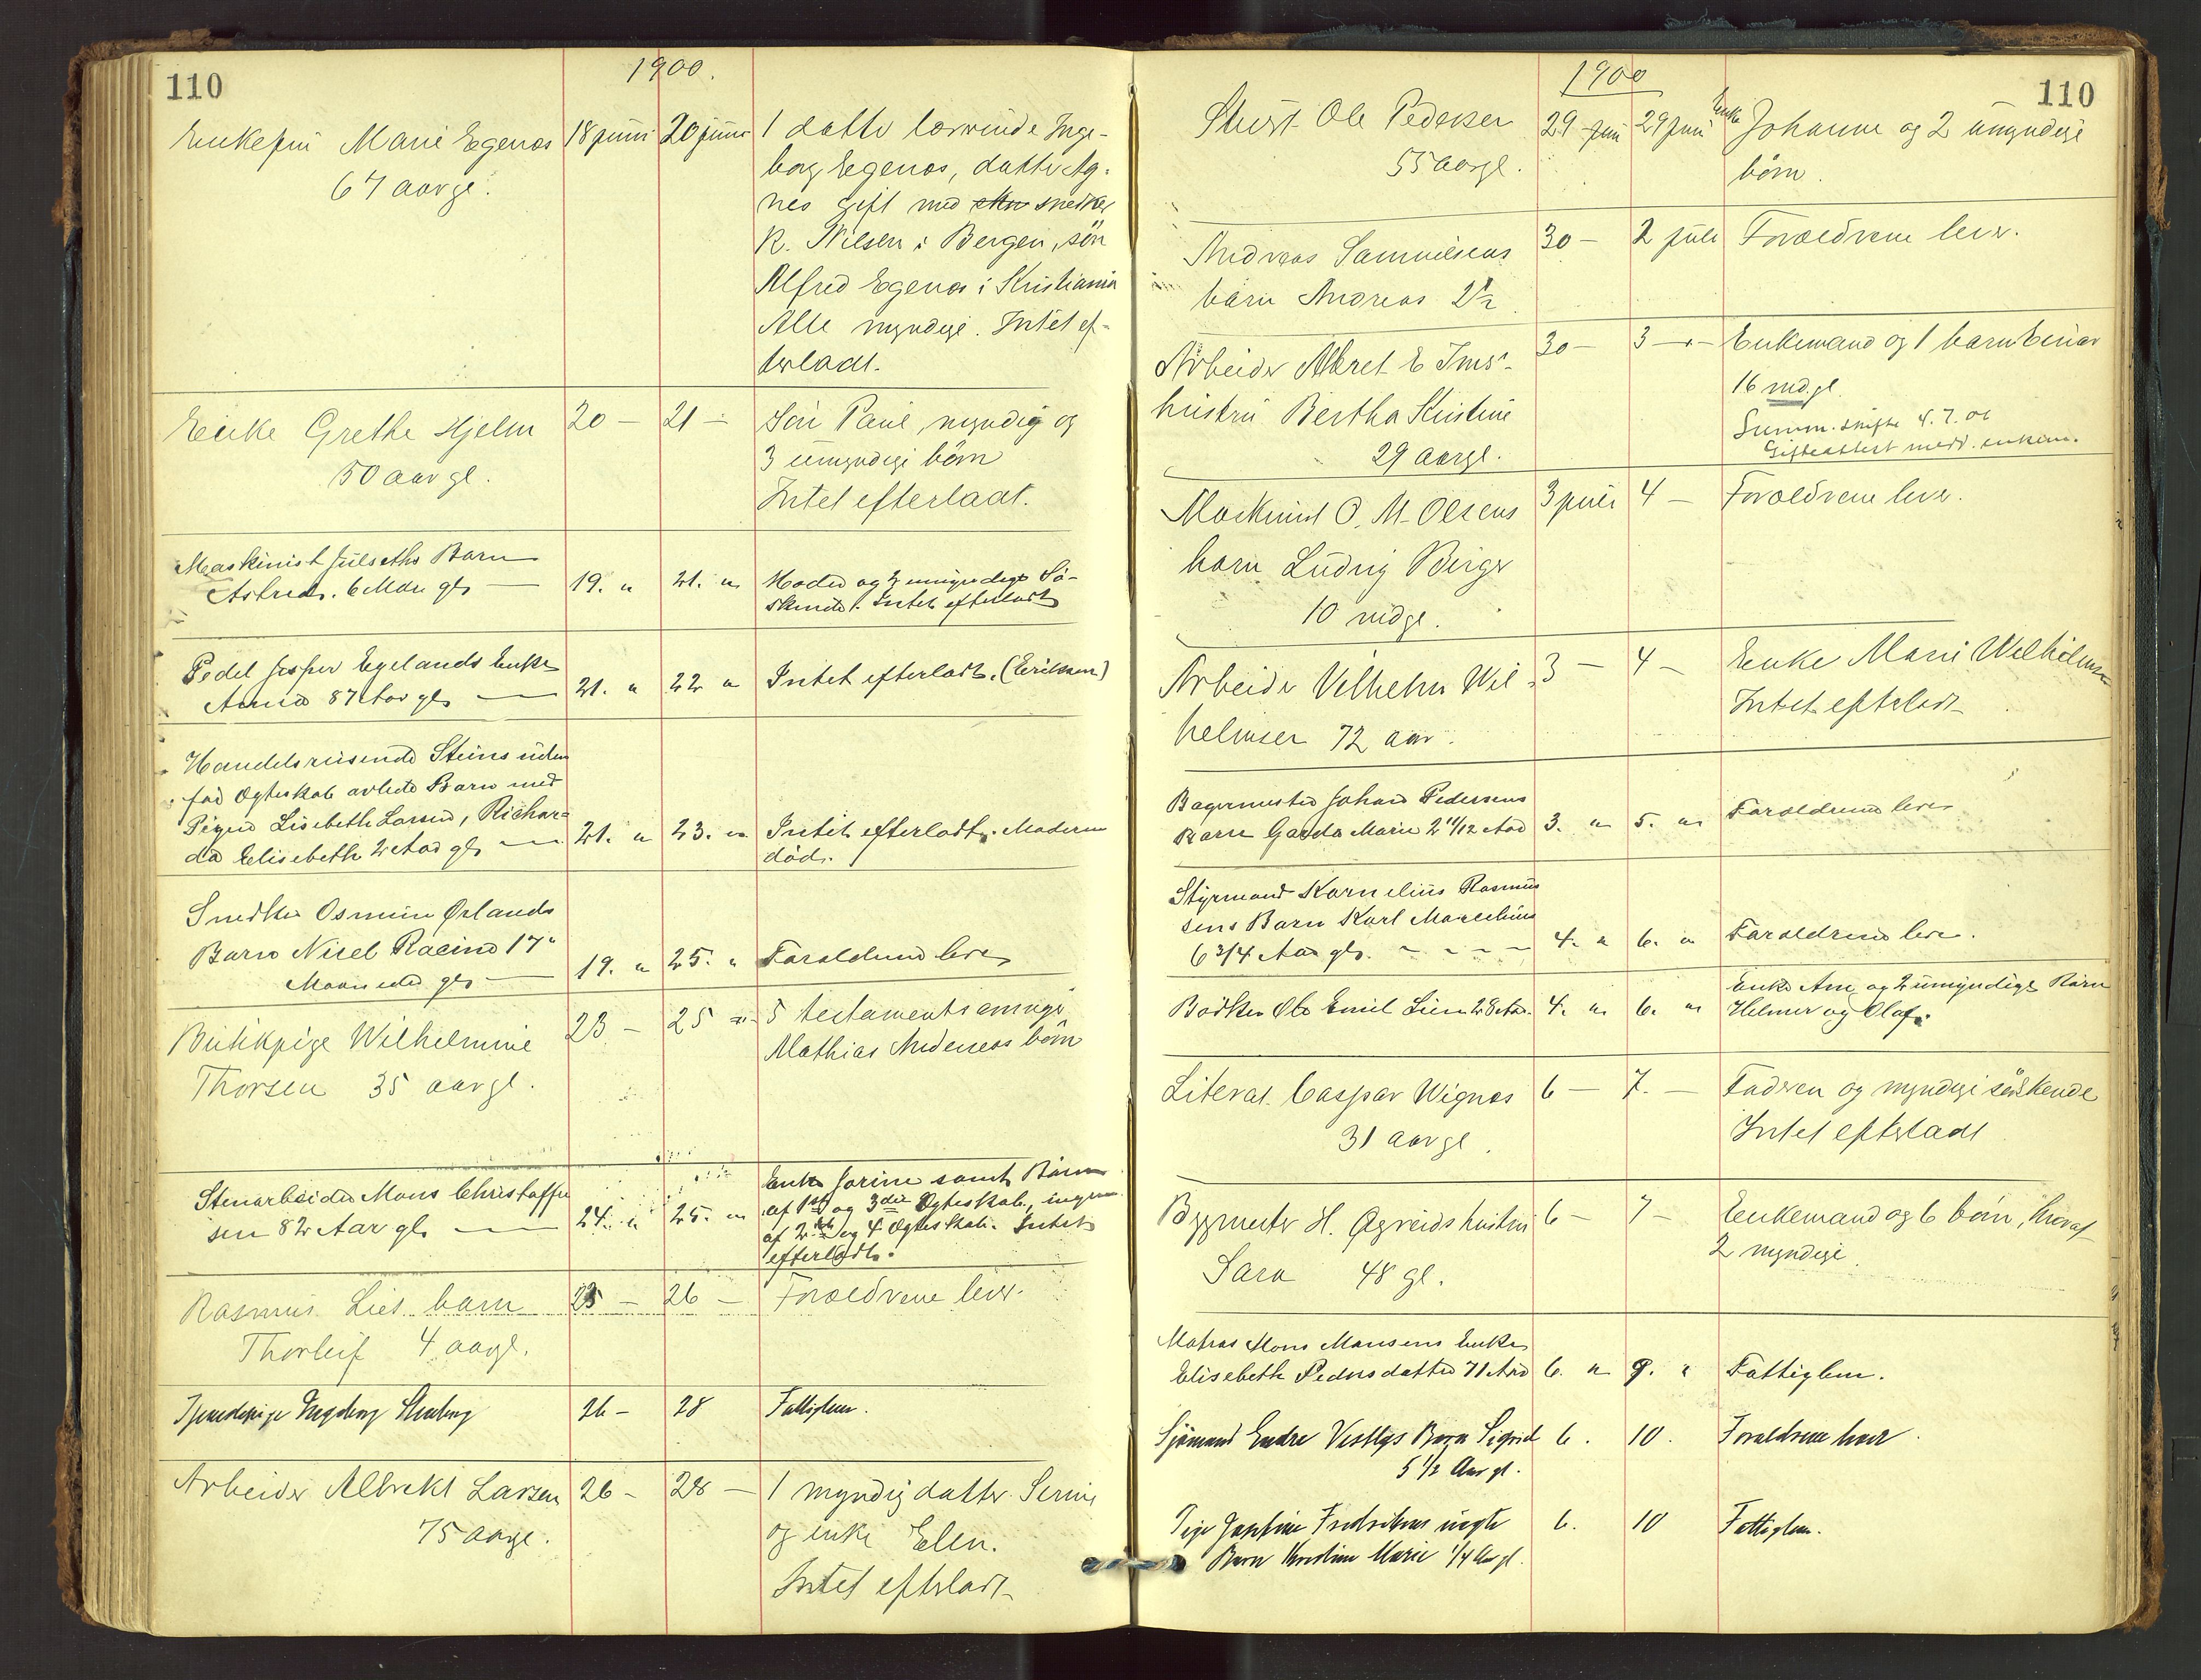 110
1900.
Enkefru Marie Egenæs 18 juni 20 juni 1 datter lærerinde Inge-
67 aar gl. borg Egenæs, datter Ag-
nes gift med snedker
K. Nilsen i Bergen, sön
Alfred Egenæs i Kristiania
Alle myndige. Intet ef-
terladt.
Enke Grethe Hjelm 20 — 21 — Sön Paul, myndig og
50 aar gl. 3 umyndige börn
Intet efterladt.
Maskinist Julseths Barn
Astrid. 6 Mdn gl. — 19. " 21. " Moder og 2 umyndige Sö-
skende. Intet efterladt
Pedel Jesper Egelands Enke
Anna 87 Aar gl. — 21. " 22 " Intet efterladt. (Eriksen)
Handelsreisende Steins uden
for Ægteskab avlede Barn med
Pigen Lisebeth Larsen, Richar-
da Elisebeth 2 Aar gl. — 21. " 23. " Intet efterladt. Moderen
död.
Snedker Osmun Ørlands
Barn Nicel 17
Maaneder gl. — 19. " 25. " Forældrene lever
Butikpige Wilhelmine 23 — 25 " 5 testamentsarvinge
Thorsen 35 aar gl. Mathias börn
Stenarbeider Mons Christoffer
sen 82 Aar gl. — 24. " 25. " Enke Jorine samt Börn
af 1st og 3die Ægteskab, ingen
af 2det og 4 Ægteskab. Intet
efterladt.
Rasmus Lies barn 25 — 26 — Forældrene lever.
Thorleif 4 aargl.
Tjenestepige Ingeborg Stenberg 26 — 28 Fattiglem.
Arbeider Albrekt Larsen 26 — 28 — 1 myndig datter Serine
75 aargl. og enke Elen.
Intet efterladt
1900
110
Ole Pedersen 29 juni 29 juni Enke Johanne og 2 umyndige
55 aargl. börn.
Andreas Samuelsens 30 — 2 juli Forældrene lever.
barn Andreas 2 1/2
Arbeider Albret E Ims' 30 — 3 — Enkemand og 1 barn Einar
hustru Bertha Kristine 16 md. gl.
29 aargl. Summ. skifte 4.7.06
Gifteattest medd. enkem.
Maskinist O. M. Olsens 3 juli 4 — Forældrene lever.
barn Ludvig Birger
10 mdgl.
Arbeider Vilhelm Wil- 3 — 4 — Enke Marie Wilhelmsen
helmsen 72 aar. Intet efterladt
Bagermester Johan Pedersens
Barn Garda Marie 2 11/12 Aar 3. " 5. " Forældrene lever
Styrmand Kornelius Rasmus
sens Barn Karl Marcelius
6 3/4 Aar gl. — 4. " 6. " Forældrene lever.
Bödker Ole Emil Lien 28 Aar. 4. " 6. " Enke Ane og 2 umyndige Börn
Helmer og Olaf.
Literat. Caspar Wignæs 6 — 7. — Fadren og myndige söskende
31 aargl. Intet efterladt
Bygmester H. Ægreids hustru 6 — 7 — Enkemand og 6 börn, hvoraf
Sara 48 gl. 2 myndige
Matros Mons Monsens Enke
Elisebeth Pedersdatter 71 Aar 6. " 9. " Fattiglem.
Sjömand Endre Vestlys Barn Sigrid 6. 10. Forældrene lever
5 1/2 Aar gl.
Pige Josefine Fredriksens uegte 6. 10 Fattiglem.
Barn Kristine Marie 1/4 Aar gl.